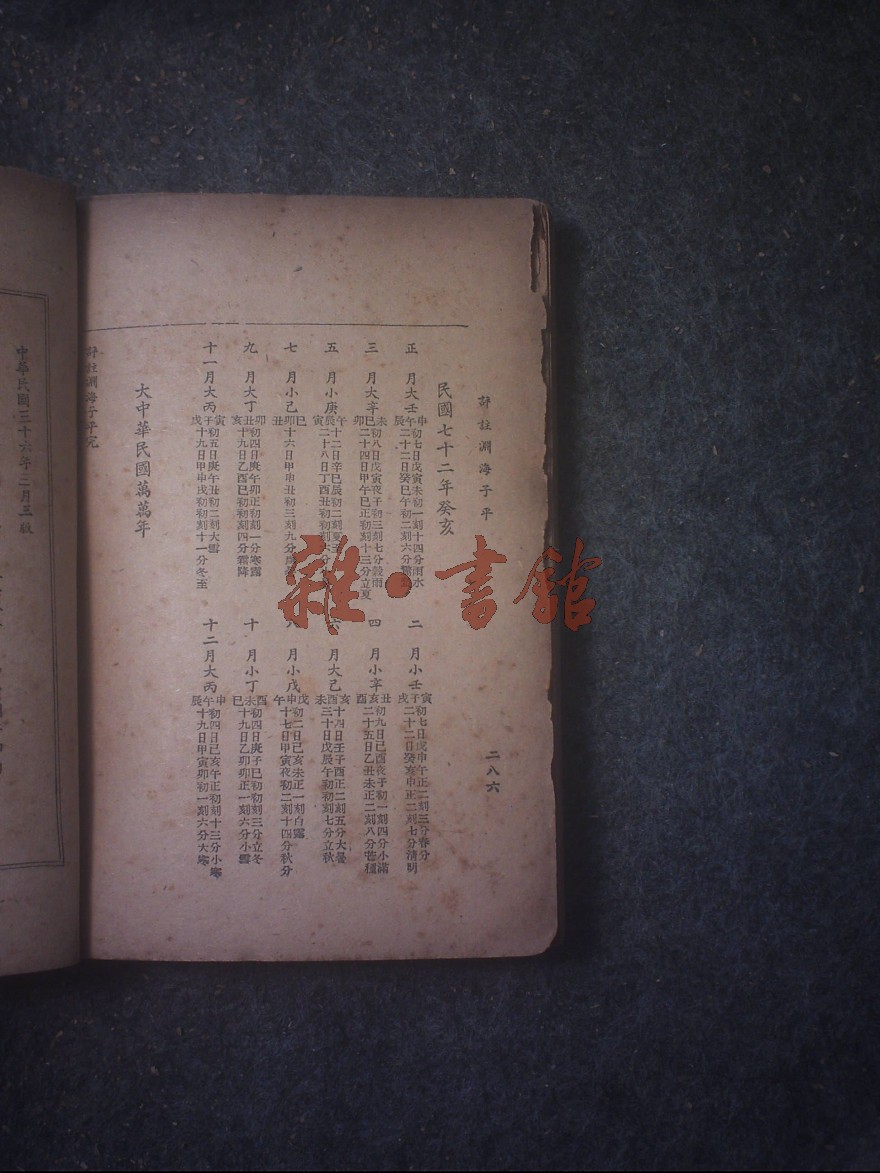 評註淵海子平
二八六
民國七十二年癸亥
正 月大壬申午辰
初七日戊寅未初一刻十四分雨水
二十二日癸巳午初二刻六分
二 月小壬寅子戌
初七日戊申午正二刻三分春分
二十二日癸亥申正二刻七分清明
三 月大辛未巳卯
初八日戊寅夜子初三刻七分穀雨
二十四日甲午巳正初刻十三分立夏
四 月小辛丑亥酉
初九日己酉夜子初一刻四分小滿
二十五日乙丑未正二刻八分芒種
五 月小庚午辰寅
十二日辛巳辰初二刻夏至
二十八日丁酉丑初刻
六 月大己亥酉未
十四日壬子酉正二刻五分大暑
三十日戊辰午初初刻七分立秋
七 月小己巳卯丑
十六日甲申丑初三刻九分
八 月小戊戌申午
初二日己亥未正一刻白露
十七日甲寅夜初二刻十四分秋分
九 月大丁卯丑亥
初四日庚午卯正初刻一分寒露
十九日乙酉巳初初刻四分霜降
十 月小丁酉未巳
初四日庚子巳初初刻三分立冬
十九日乙卯卯正一刻六分小雪
十一月大丙寅子戌
初五日庚午丑初二刻大雪
十九日甲申戌初初刻十一分冬至
十二月大丙申午辰
初四日己亥午正初刻十三分小寒
十九日甲寅卯初一刻六分大寒
大中華民國萬萬年
評註淵海子平究
中華民國三十六年三月三版
雜·書館